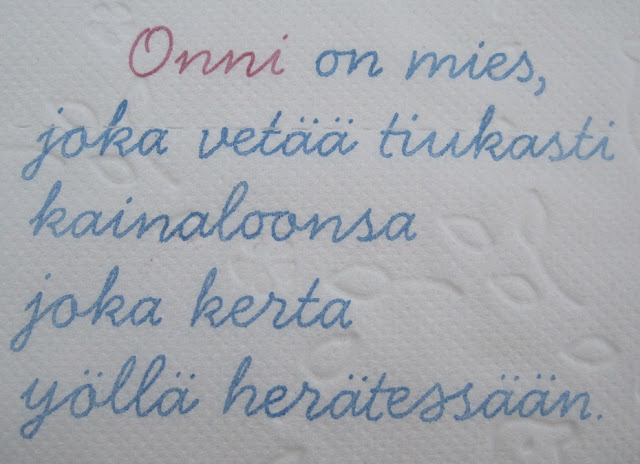 Onni on mies,
joka vetää tiukasti
kainaloonsa
joka kerta
yöllä herätessään.